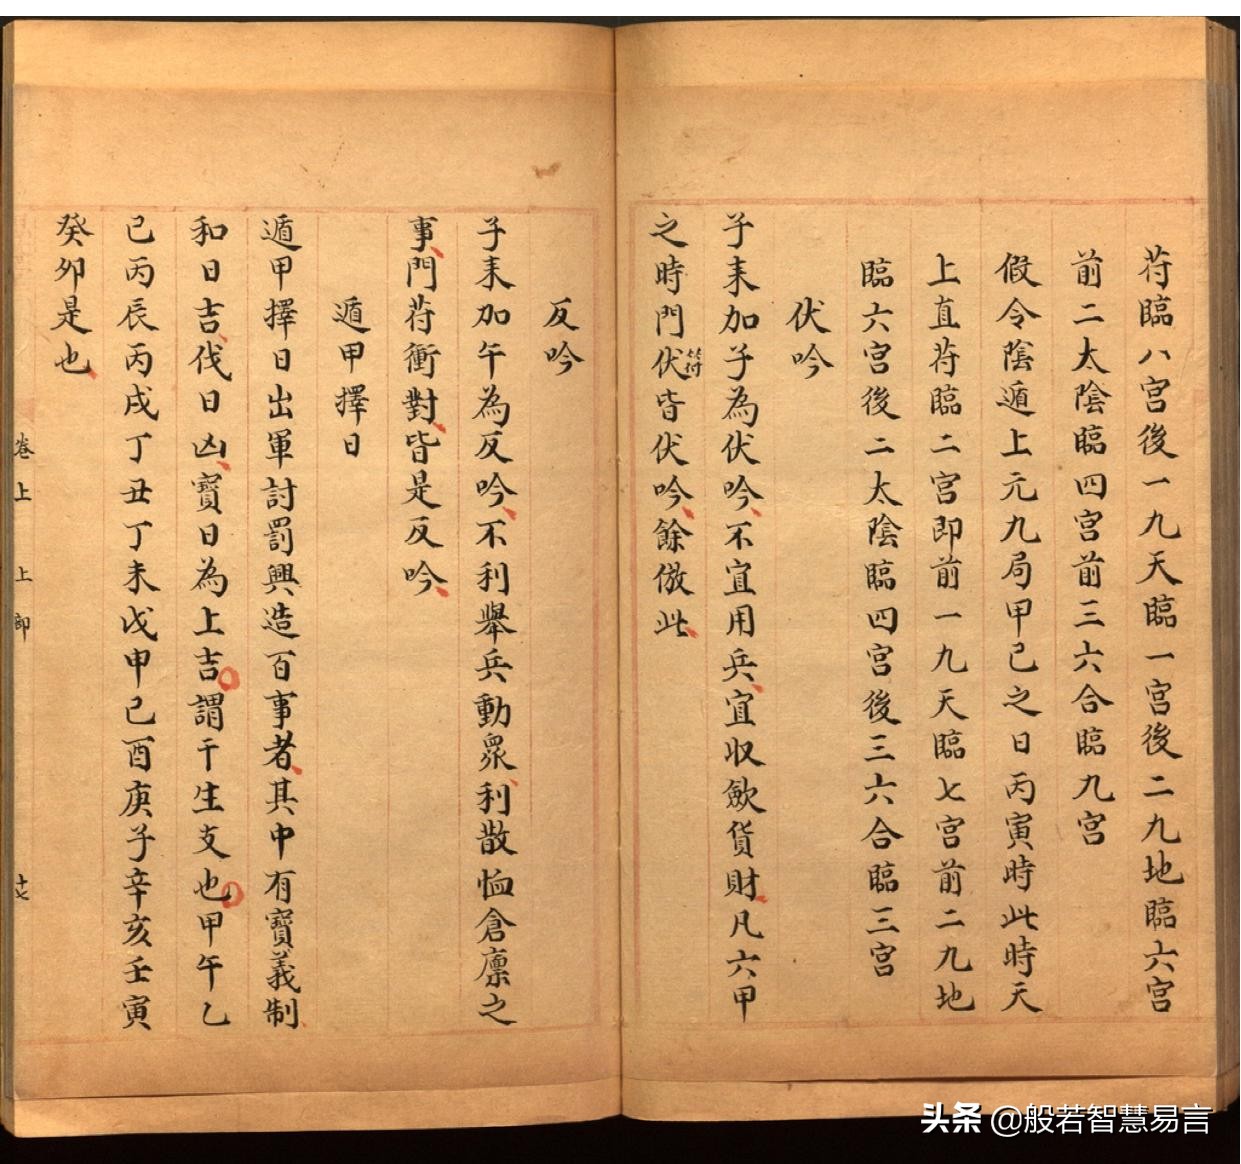 苻臨八宮後一九天臨一宮後二九地臨六宮
前二太陰臨四宮前三六合臨九宮
假令陰遁上元九局甲己之日丙寅時此時天
上直苻臨二宮即前一九天臨七宮前二九地
臨六宮後二太陰臨四宮後三六合臨三宮
伏吟
子来加子為伏吟不宜用兵宜収歛貨財凡六甲
之時門伏皆伏吟餘倣此
反吟
子来加午為反吟不利舉兵動衆利散恤倉廪之
事門苻衝對皆是反吟
遁甲擇日
遁甲擇日出軍討罰興造百事者其中有寶義制
和日吉伐日凶寶日為上吉謂干生支也甲午乙
巳丙辰丙戌丁丑丁未戊申己酉庚子辛亥壬寅
癸卯是也
卷上 上 十七
头条 @般若智慧易言